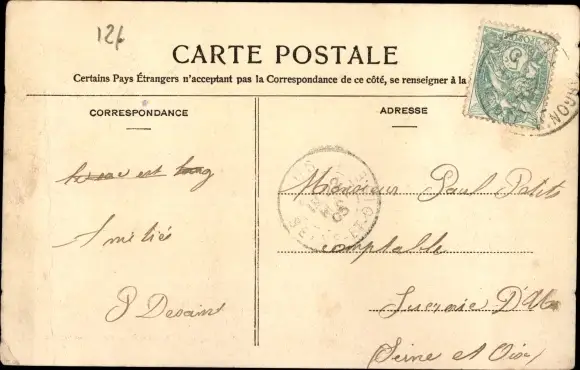 12f
CARTE POSTALE
Certains Pays Étrangers n'acceptant pas la Correspondance de ce côté, se renseigner à la
CORRESPONDANCE
ADRESSE
est long
Amitiés
P Desaint
Monsieur Paul Petit
comptable
Sucrerie D'Us
(Seine et Oise)